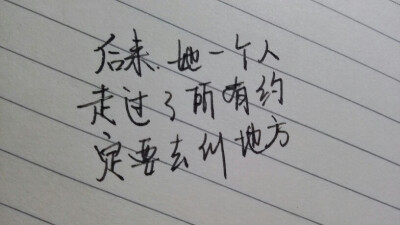 后来.她一个人
走过了所有约
定要去的地方